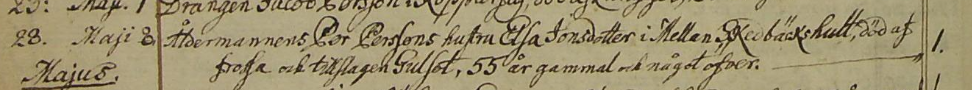 23: Maji. 1 Drängen Jacob Persson i Kopparslag,
28. Maji 8. Åldermannens Per Perssons hustru Elsa Jonsdotter i Mellan Skedbäckshult, död af 1.
Majus. frossa och tillslagen Gulsot, 55 år gammal och något öfver.